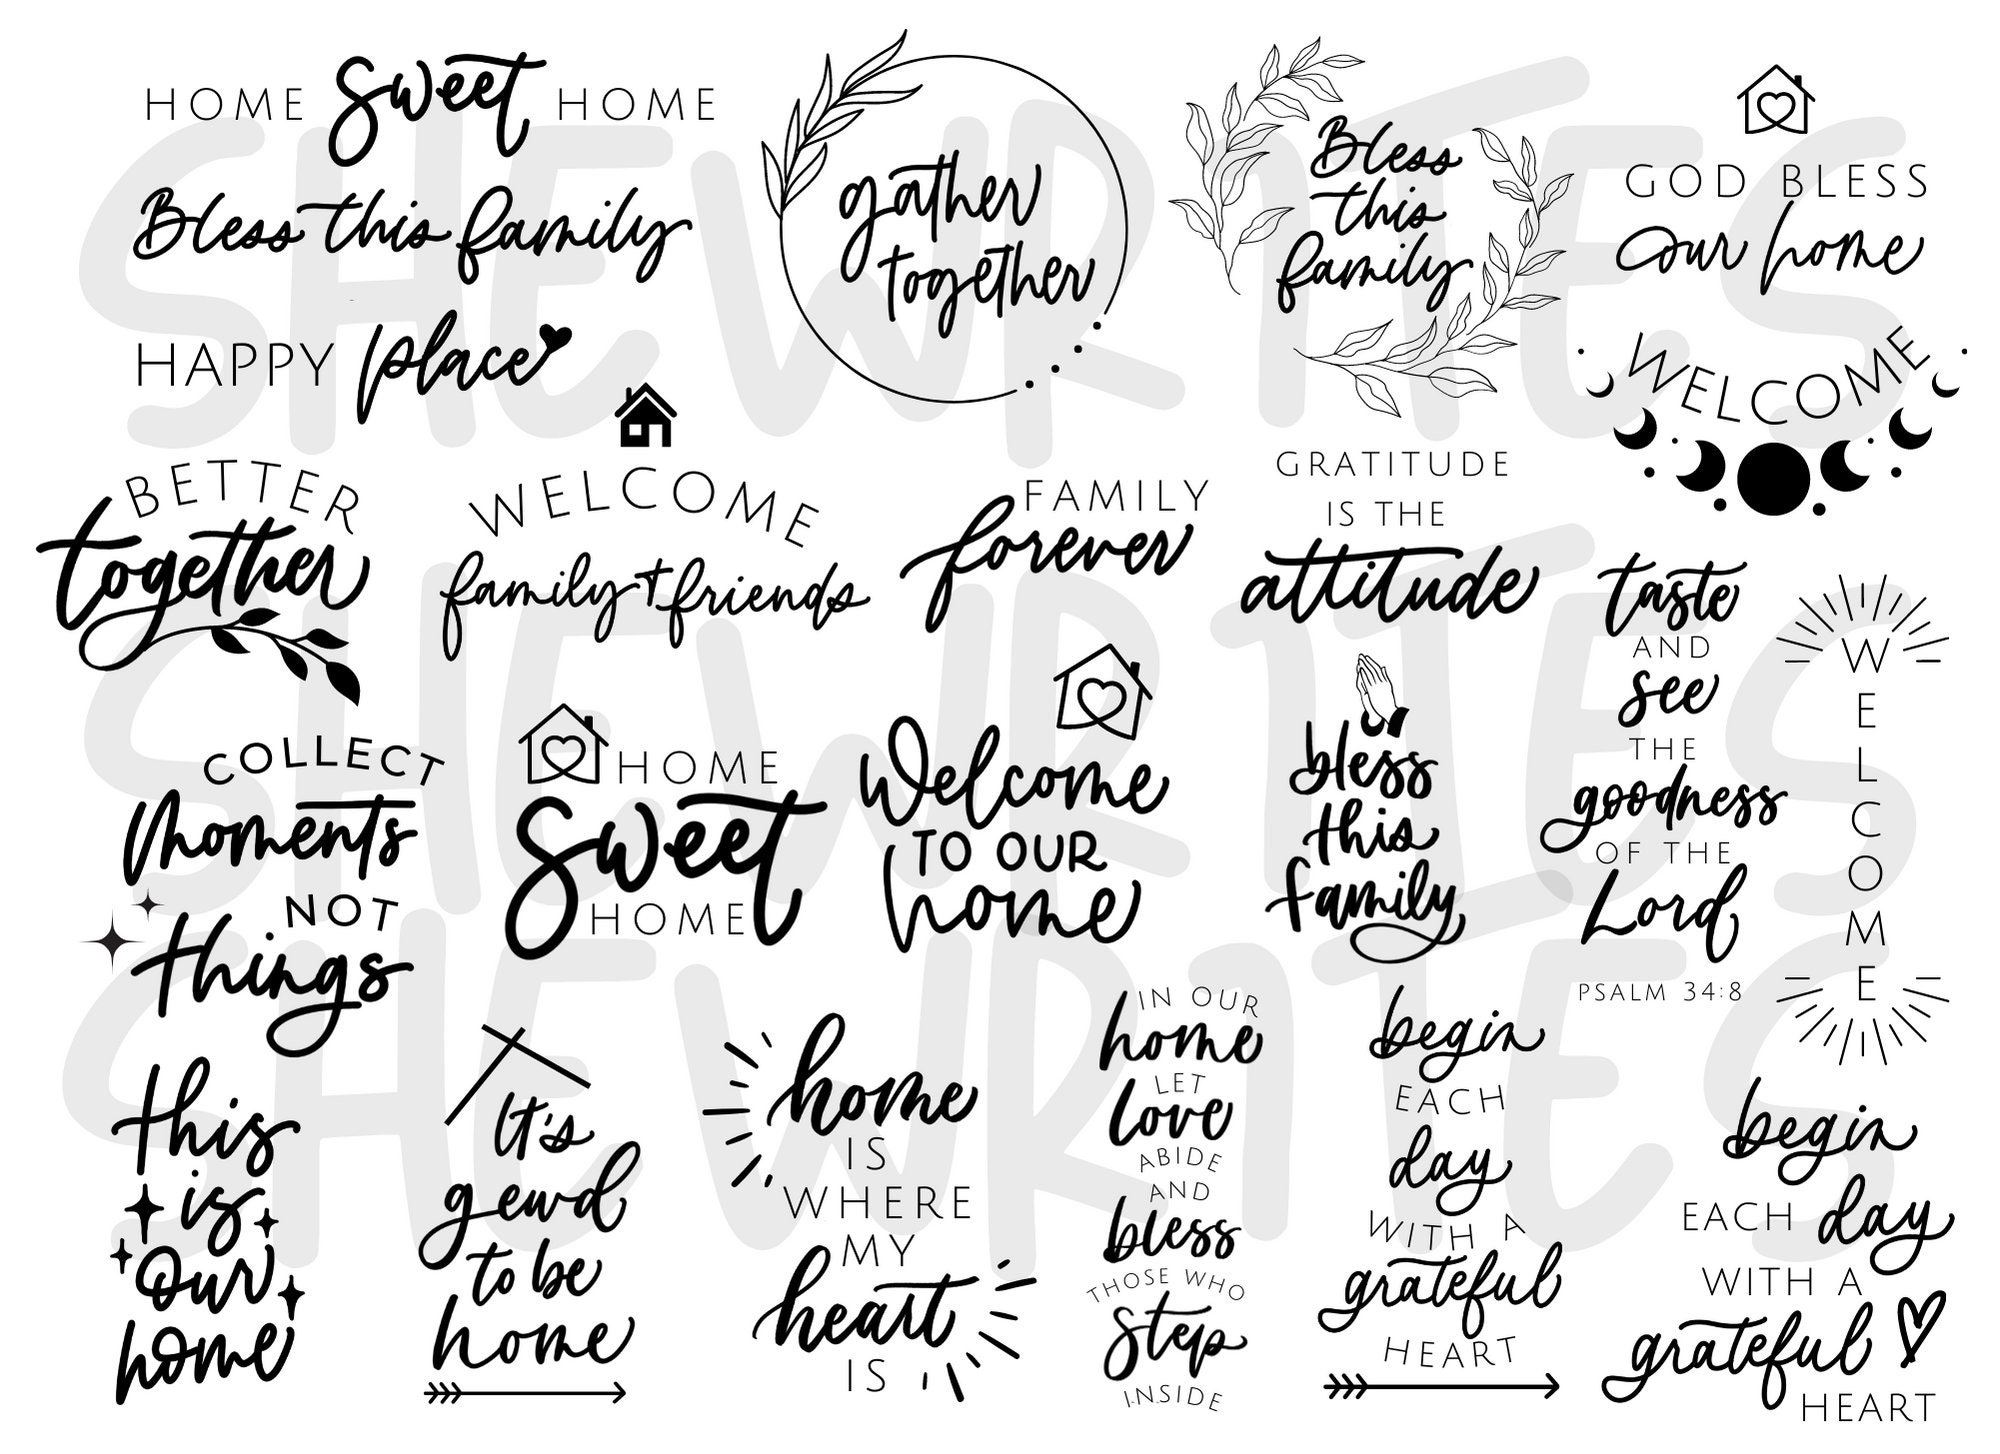 HOME sweet HOME
Bless this family
HAPPY place
gather
together
Bless
this
family
GOD BLESS
our home
WELCOME
BETTER
together
WELCOME
family + friends
FAMILY
forever
GRATITUDE
IS THE
attitude
taste
AND
see
THE
goodness
OF THE
Lord
PSALM 34:8
WELCOME
COLLECT
moments
NOT
things
HOME
Sweet
HOME
Welcome
TO OUR
home
bless
this
family
this
is
our
home
It's
gewd
to be
home
home
IS
WHERE
MY
heart
IS
IN OUR
home
LET
love
ABIDE
AND
bless
THOSE WHO
step
INSIDE
begin
EACH
day
WITH A
grateful
HEART
begin
EACH day
WITH A
grateful
HEART
SHEWRITES
SHEWRITES
SHEWRITES